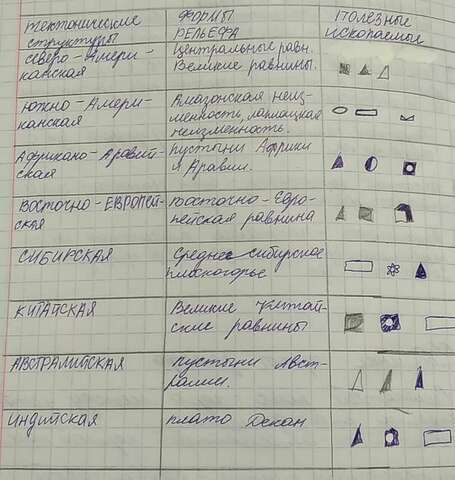 Тектонические структуры
Формы рельефа
Полезные ископаемые
Северо-Амери-
канская
Центральные равн.
Великие равнины.
Южно-Амери-
канская
Амазонская низ-
менность, лаплацкая
низменность.
Африкано-Аравий-
ская
пустыни Африки
и Аравии.
Восточно-Европей-
ская
Восточно-Евро-
пейская равнина
Сибирская
Среднесибирское
плоскогорье
Китайская
Великие Китай-
ские равнины
Австралийская
пустыни Авст-
ралии.
Индийская
плато Декан